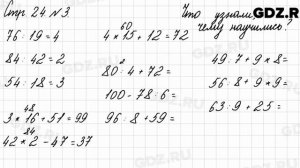 Стр 24 №3
Что узнали,
чему научились?
GDZ.RU
76 : 19 = 4
84 : 42 = 2
54 : 18 = 3
48
3 * 16 + 51 = 99
84
42 * 2 - 47 = 37
60
4 * 15 + 12 = 72
80 : 4 + 72 =
100 - 78 : 6 =
96 : 8 + 59 =
49 : 7 + 9 * 8 =
56 : 8 + 9 * 9 =
63 : 9 + 25 =